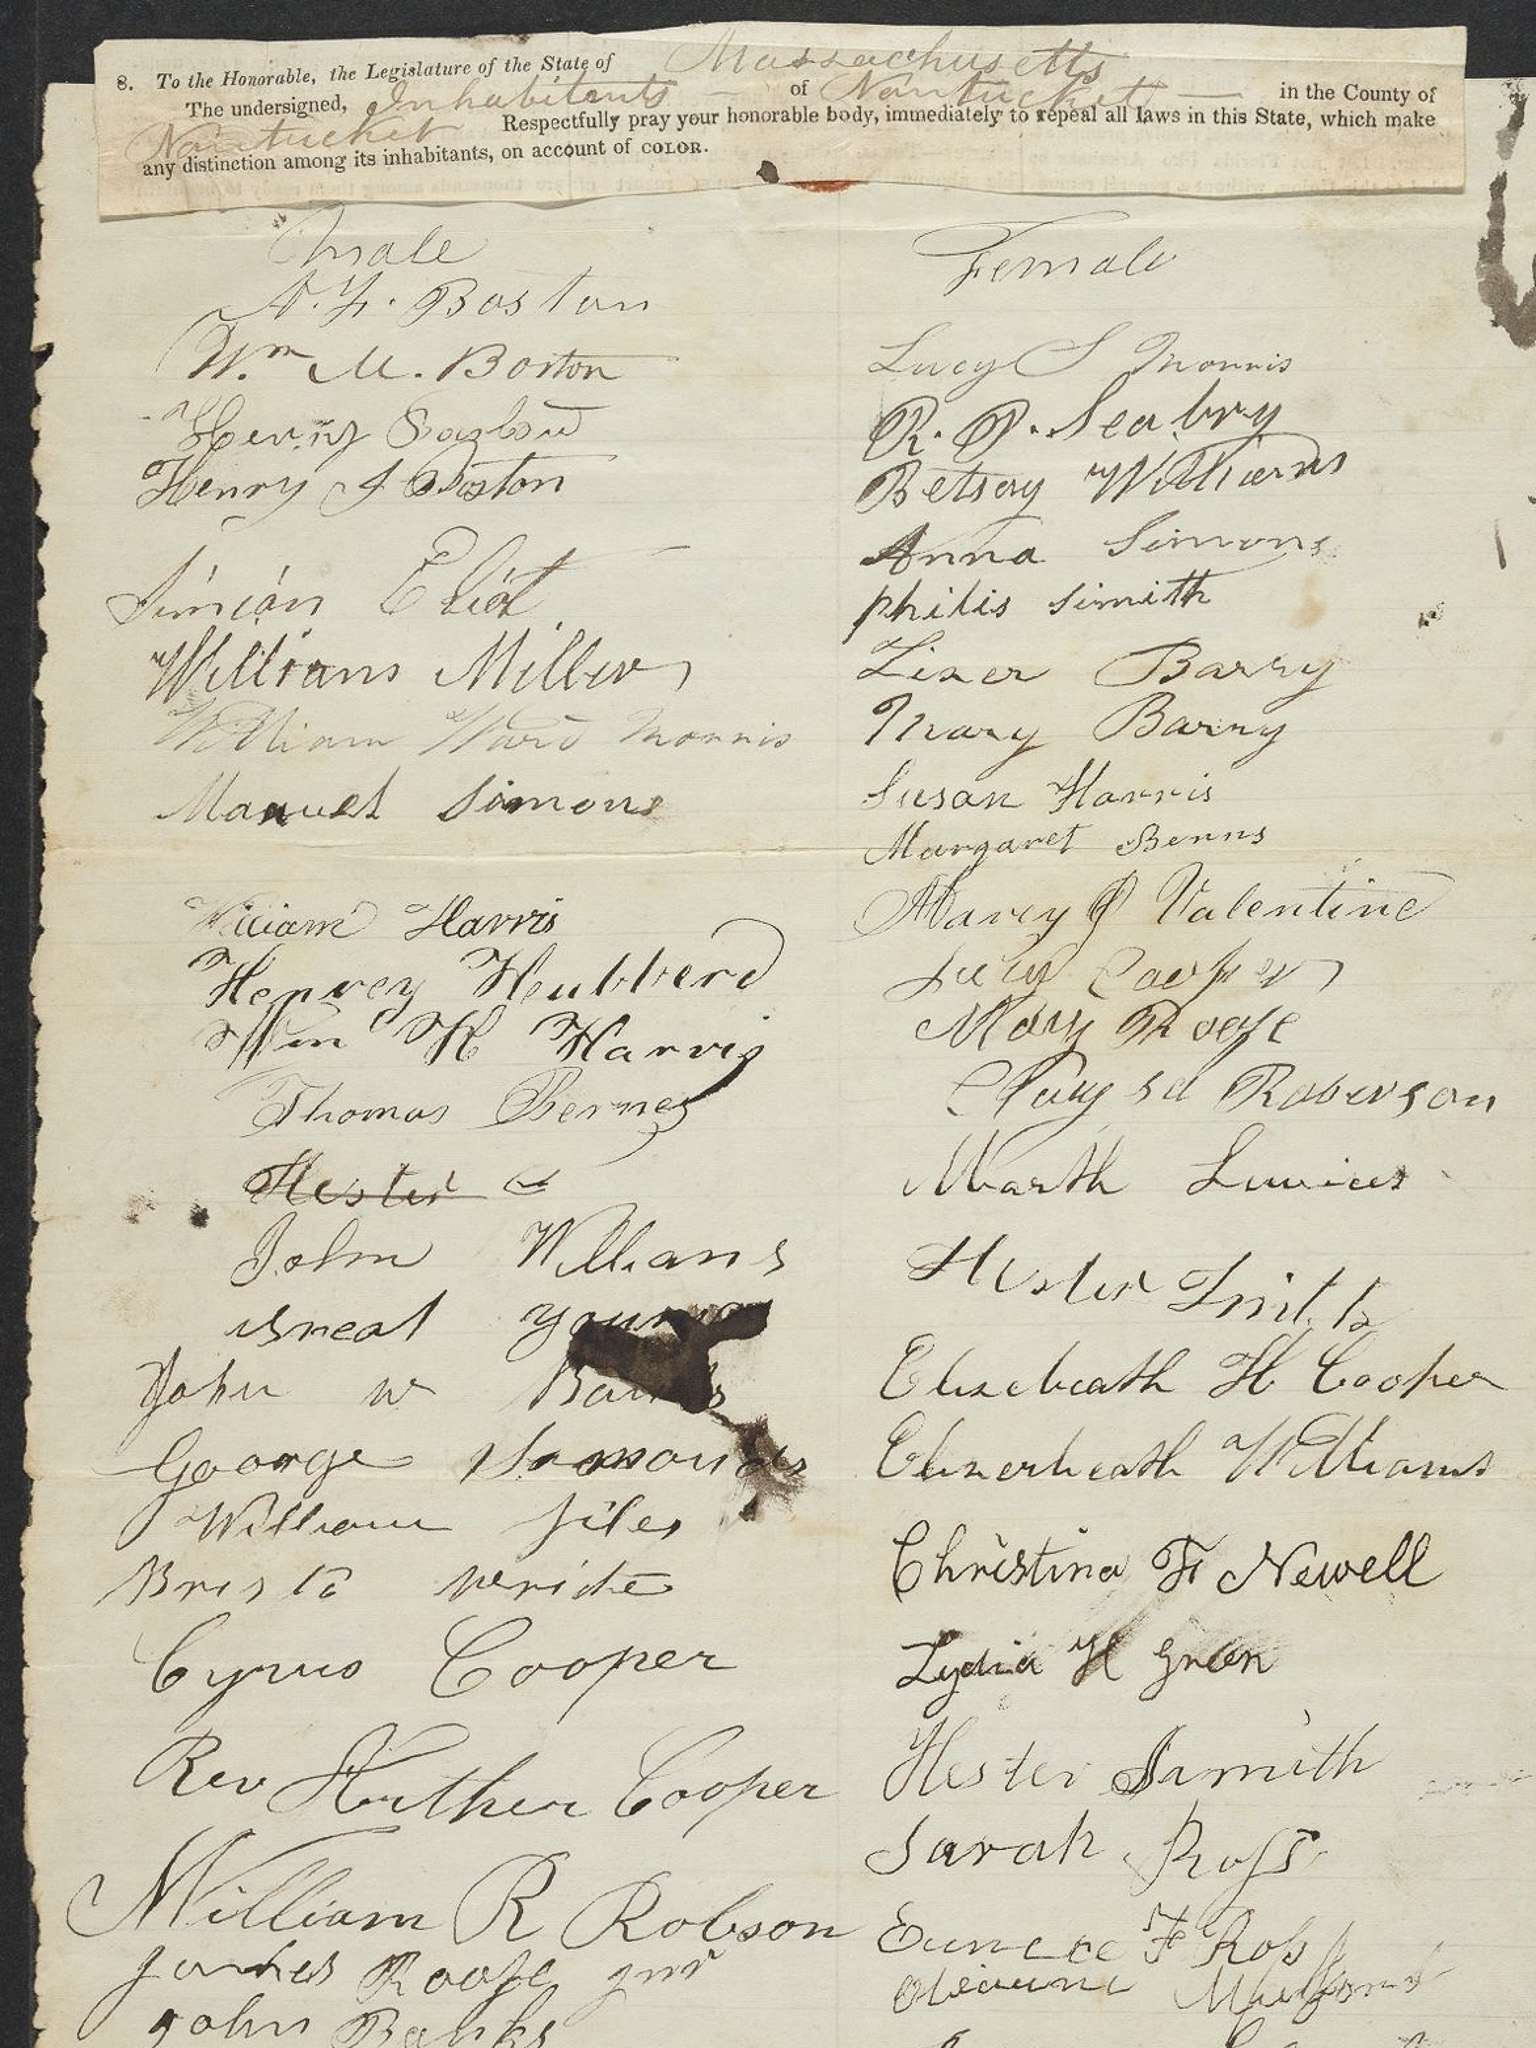 8. To the Honorable, the Legislature of the State of Massachusetts
The undersigned, Inhabitants — of Nantucket — in the County of
Nantucket Respectfully pray your honorable body, immediately to repeal all laws in this State, which make
any distinction among its inhabitants, on account of COLOR.
Male
A. F. Boston
Wm M. Borton
Henry
Henry J Boston
Simian Eliot
Willians Miller
William Ward Morris
Manuel Simons
William Harris
Henrey Heubberd
Wm H Harris
Thomas Berney
Hester
John Willians
isreal young
John W Banks
George Simonds
William Jiles
Bristo write
Cyrus Cooper
Rev Arther Cooper
William R Robson
James Roose jnr
John Banks
Female
Lucy S Morris
R. P. Seabry
Betsey Williams
Anna Simons
philis Simith
Lizer Barry
Mary Barry
Susan Harris
Margaret Benns
Marey J Valentine
Lucy Cooper
Mary Roose
Roberson
Marth
Hester Smith
Elizebeath H Cooper
Elizerbeath Williams
Christina F Newell
Lydia H Green
Hester Smith
Sarah Ross
Eunece F Ross